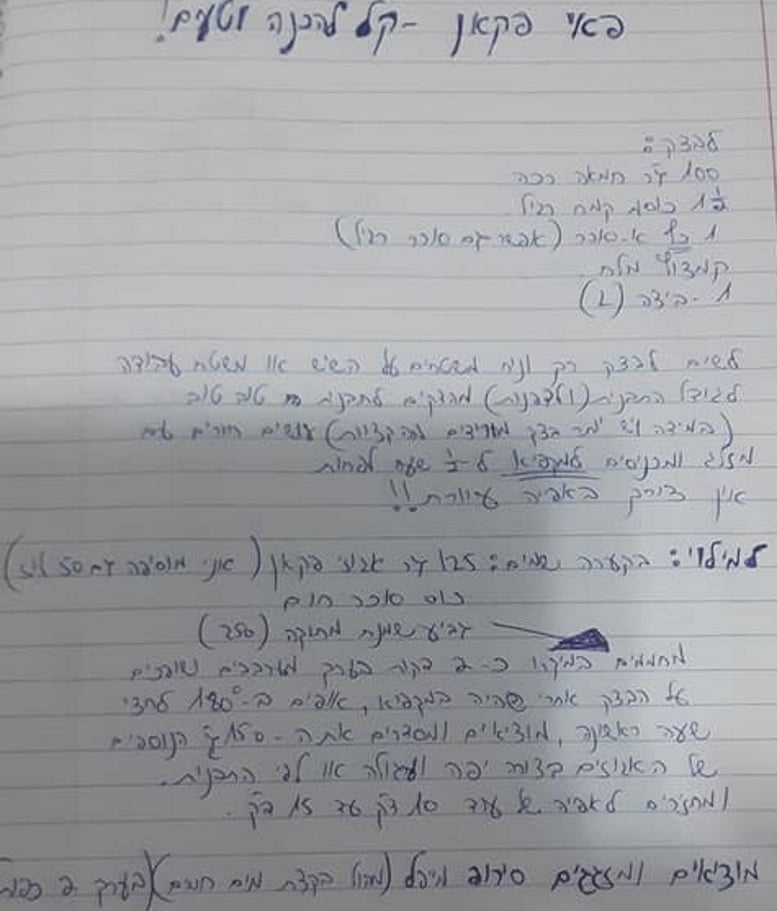 פאי פקאן - קל להכנה וטעים!
לבצק:
100 גר חמאה רכה
1 1/2 כוסות קמח רגיל
1 כף א. סוכר (אפשר גם סוכר רגיל)
קמצוץ מלח
1 - ביצה (L)
לשים לבצק רק ונוח משטחים על השיש או משטח עבודה
לגודל התבנית (ולדפנות) מהדקים לתבנית טוב טוב
(במידה ויש יותר בצק מורידים מהקצוות) עושים חורים עם
מזלג ומכניסים למקפיא ל-1/2 שעה לפחות
אין צורך באפיה עיוורת!!
למילוי: בקערה שמים: 125 גר אגוזי פקאן (אני מוסיפה גם 50
כוס סוכר חום
גביע שמנת מתוקה (250)
מחממים במיקרו כ-2 דקות בערך מערבבים שופכים
על הבצק אחרי שהיה במקפיא, אופים ב-180° לחצי
שעה ראשונה, מוציאים ומסדרים את ה-150 גר הנוספים
של האגוזים בצורה יפה ועגולה או לפי התבנית.
ומחזירים לאפיה של עוד 10 דק עד 15 דק.
מוציאים ומזגגים סירופ מייפל (מהול בקצת מים חמים) (בערך 2 כפות